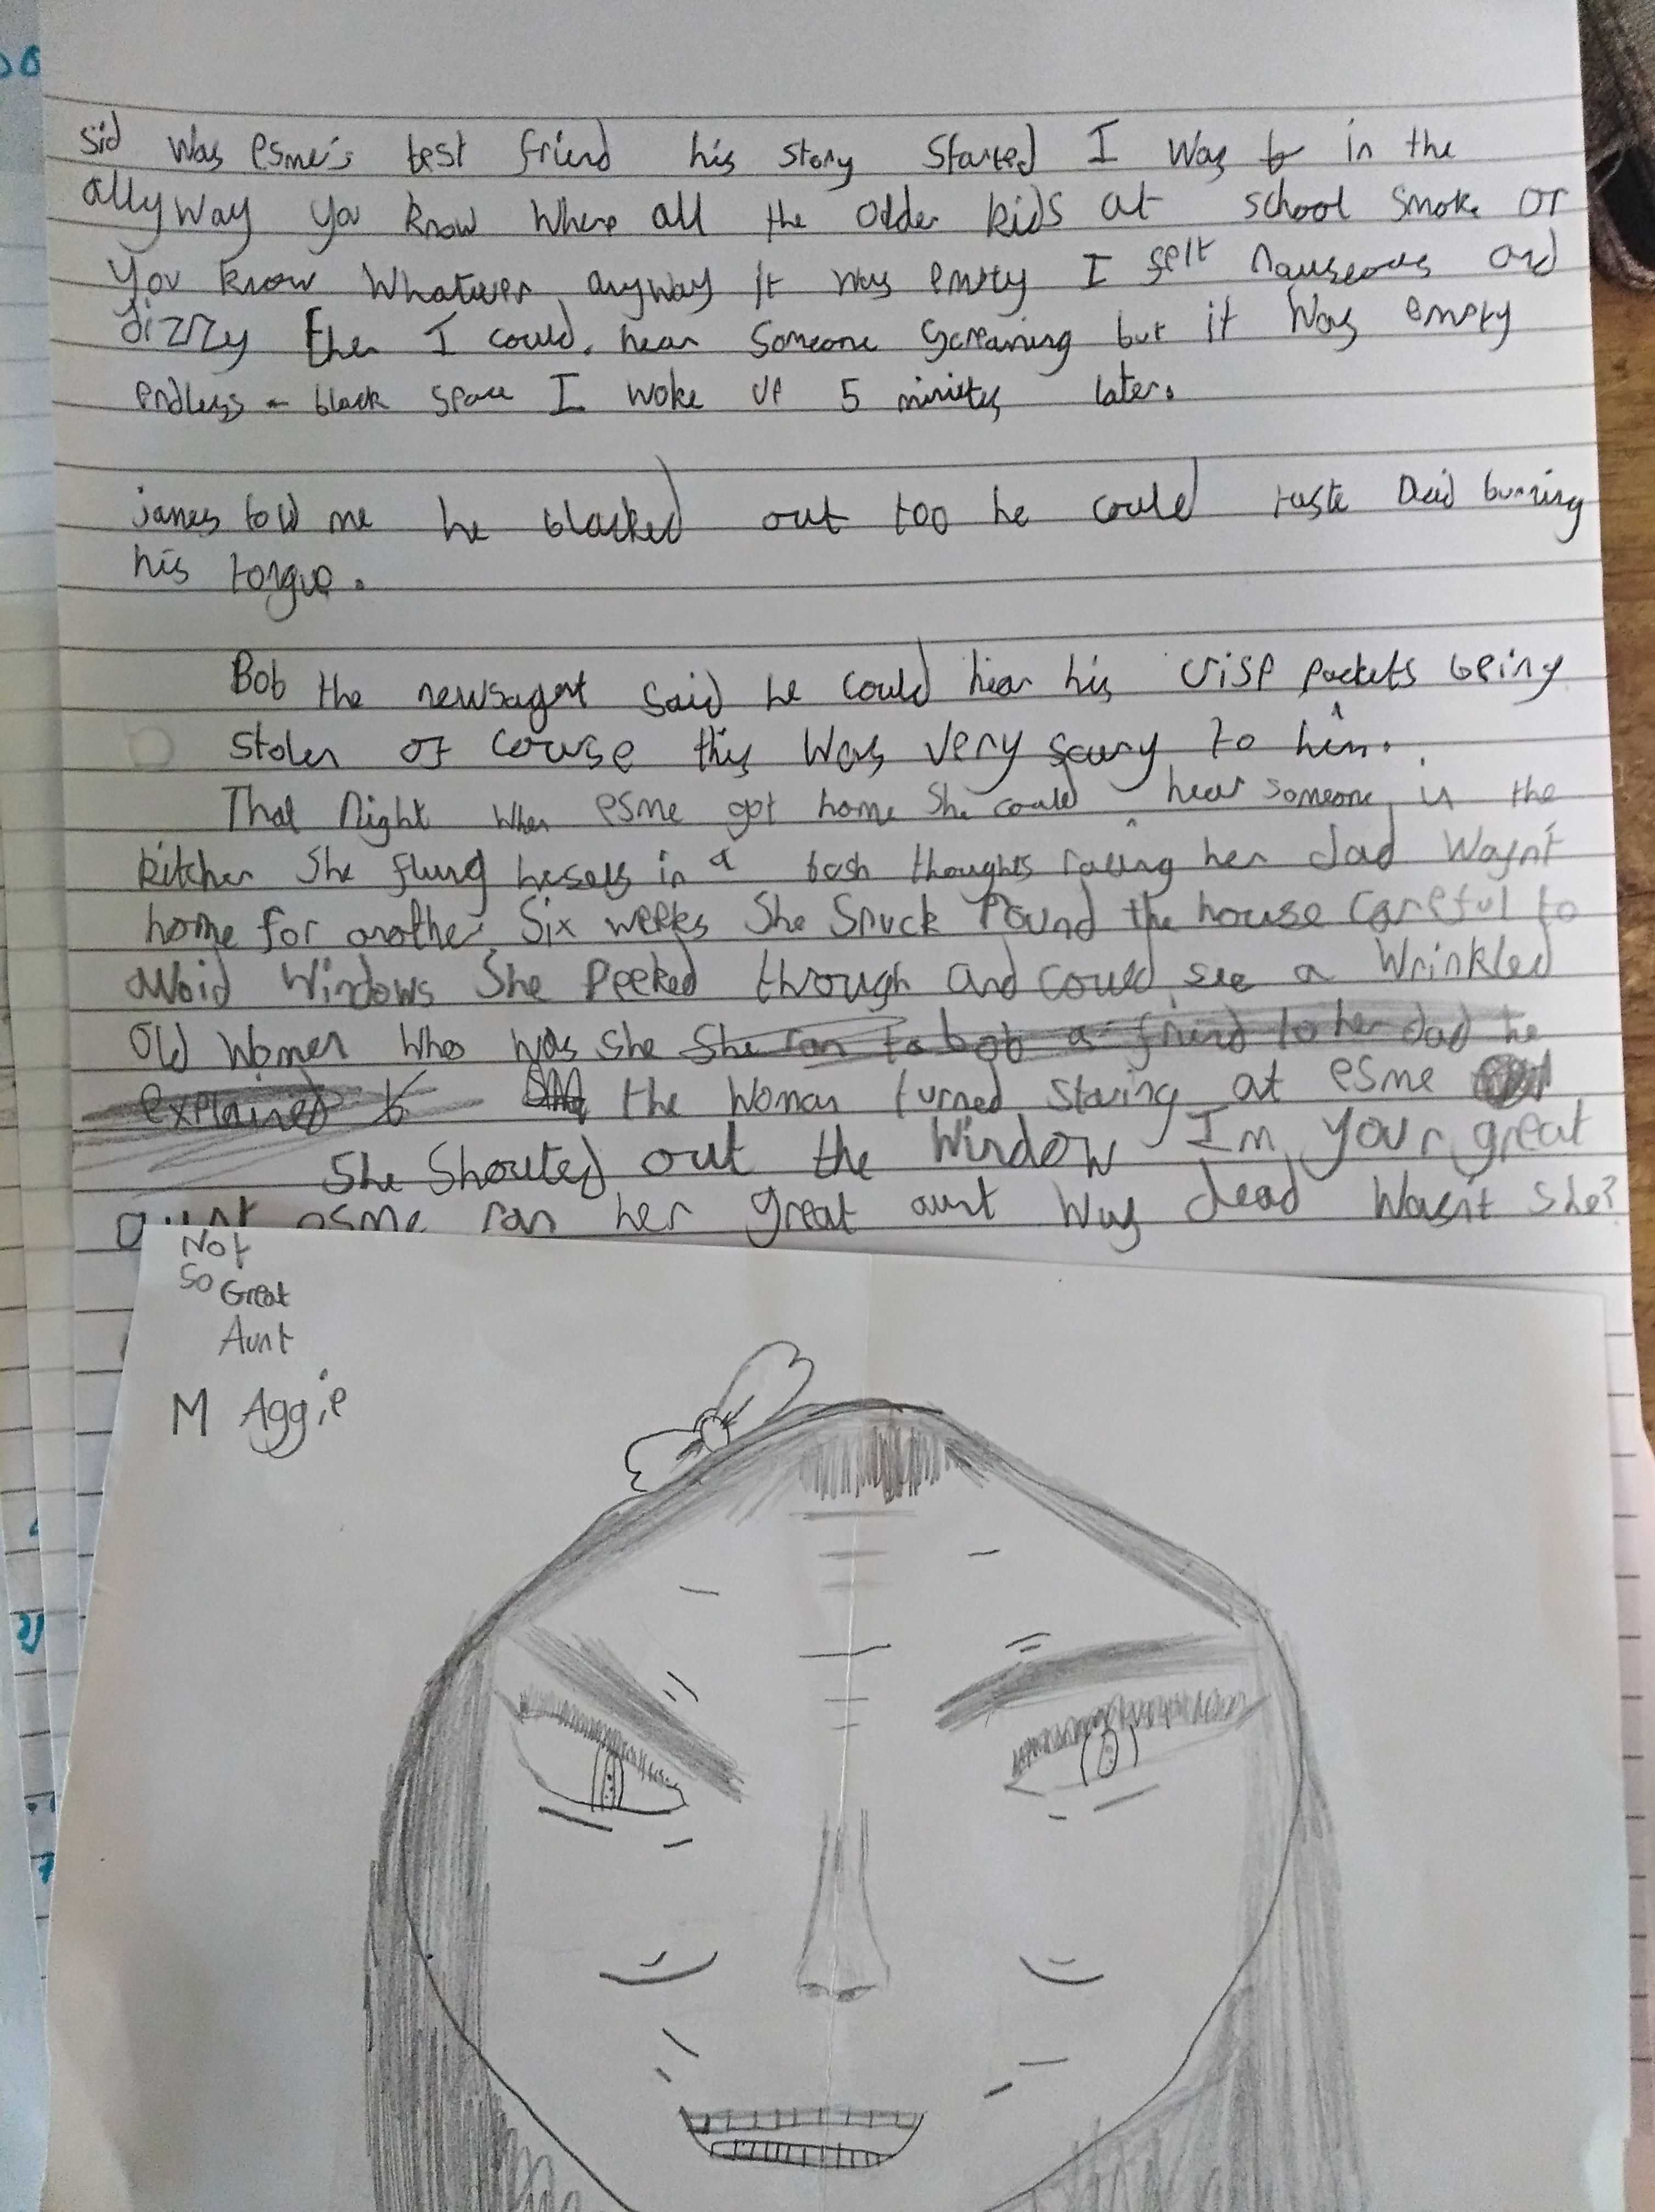 Sid was esme's best friend his story started I was b in the
allyway you know where all the older kids at school smoke or
you know whatever anyway it was empty I felt nauseous and
dizzy then I could hear someone screaming but it was empty
endless black space I woke up 5 minites later.
james told me he blacked out too he could taste burning
his tongue.
Bob the newsagent said he could hear his crisp packets being
stolen of course this was very scary to him.
That night when esme got home she could hear someone in the
kitchen she flung herself in a bush thoughts racing her dad wasn't
home for another six weeks She snuck round the house careful to
avoid windows She peeked through and could see a wrinkled
old women who was she She ran to bob a friend to her dad he
explained the woman turned staring at esme
She shouted out the window Im your great
aunt esme ran her great aunt was dead wasn't she?
Not
so Great
Aunt
M Aggie